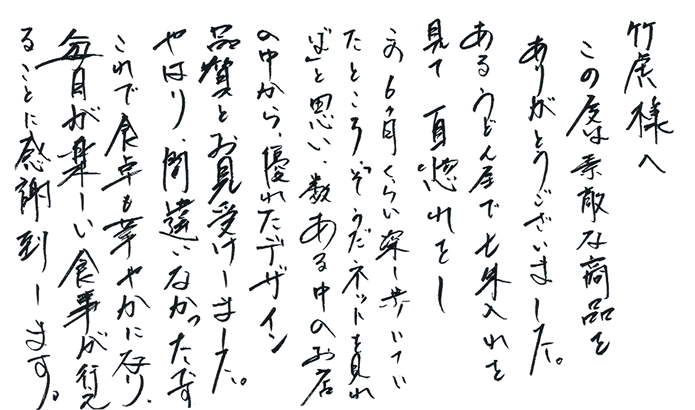 竹虎様へ
この度は素敵な商品を
ありがとうございました。
あるうどん屋で七味入れを
見て一目惚れをし
この6ヶ月くらい探し歩いてい
たところ、そうだネットを見れ
ば」と思い、数ある中のお店
の中から、優れたデザイン
品質とお見受けしました。
やはり、間違いなかったです
これで食卓も華やかになり、
毎日が楽しい食事が行え
ることに感謝致します。